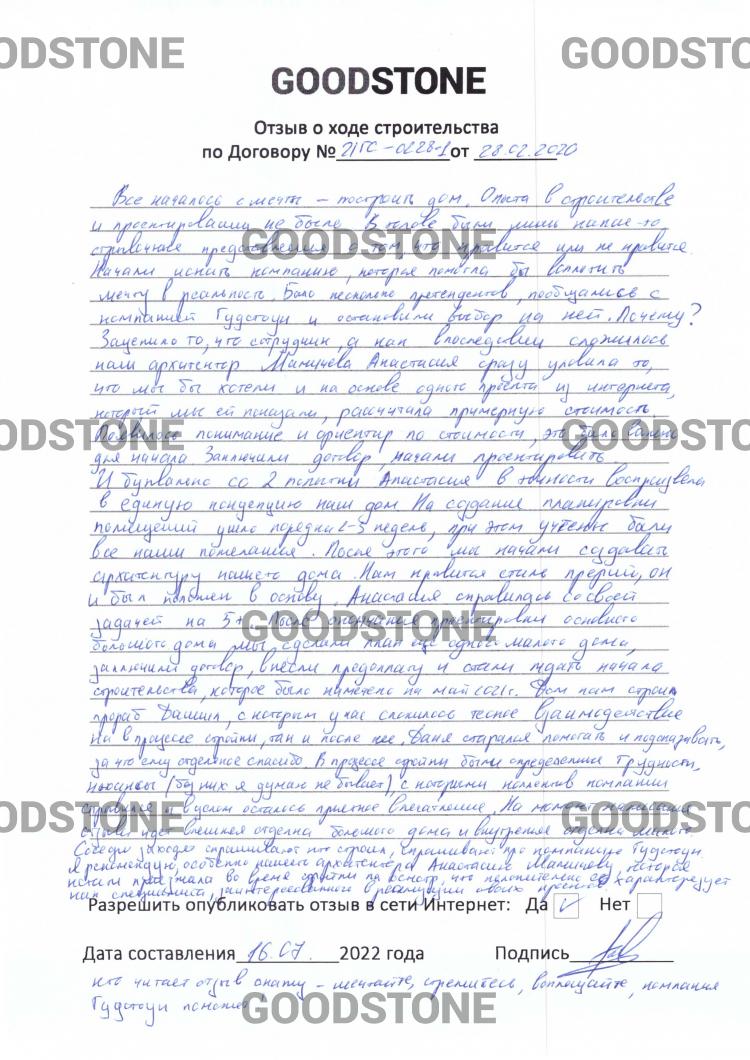 GOODSTONE
Отзыв о ходе строительства
по Договору № 21ГС-0228-1 от 28.02.2020
Все началось с мечты – построить дом. Опыта в строительстве
и проектировании не было. В голове были лишь какие-то
отрывочные представления о том, что нравится или не нравится.
Начали искать компанию, которая помогла бы воплотить
мечту в реальность. Было несколько претендентов, пообщались с
компанией Гудстоун и остановили выбор на ней. Почему?
Зацепило то, что сотрудник, а как впоследствии сложилось
наш архитектор Анастасия сразу уловила то,
что мы бы хотели и на основе одного проекта из интернета,
который мы ей показали, рассчитала примерную стоимость.
Появилось понимание и ориентир по стоимости, это было важно
для начала. Заключили договор, начали проектировать.
И буквально со 2 попытки Анастасия в точности воспроизвела
в единую концепцию наш дом. На создание планировки
помещений ушло порядка 2-3 недель, при этом учтены были
все наши пожелания. После этого мы начали создавать
архитектуру нашего дома. Нам нравится стиль прерий, он
и был положен в основу. Анастасия справилась со своей
задачей на 5+. После окончания проектировки основного
большого дома мы сделали план еще одного малого дома,
заключили договор, внесли предоплату и стали ждать начала
строительства, которое было намечено на май 2021г. Дом нам строил
прораб Даниил, с которым у нас сложилось тесное взаимодействие
как в процессе стройки, так и после нее. Даня старался помогать и подсказывать,
за что ему отдельное спасибо. В процессе стройки были определенные трудности,
нюансы (без них я думаю не бывает), с которыми коллектив компании
справился и в целом осталось приятное впечатление. На момент написания
отзыва идет внешняя отделка большого дома и внутренняя отделка малого.
Соседи заходят спрашивают кто строил, спрашивают про компанию Гудстоун.
Я рекомендую, особенно нашего архитектора Анастасию, которая
кстати приезжала во время стройки на осмотр, что положительно её характеризует
как специалиста, заинтересованного в реализации своих проектов.
Разрешить опубликовать отзыв в сети Интернет: Да ✓ Нет
Дата составления 16.07. 2022 года Подпись
кто читает отзыв скажу – мечтайте, стремитесь, воплощайте, компания
Гудстоун поможет!